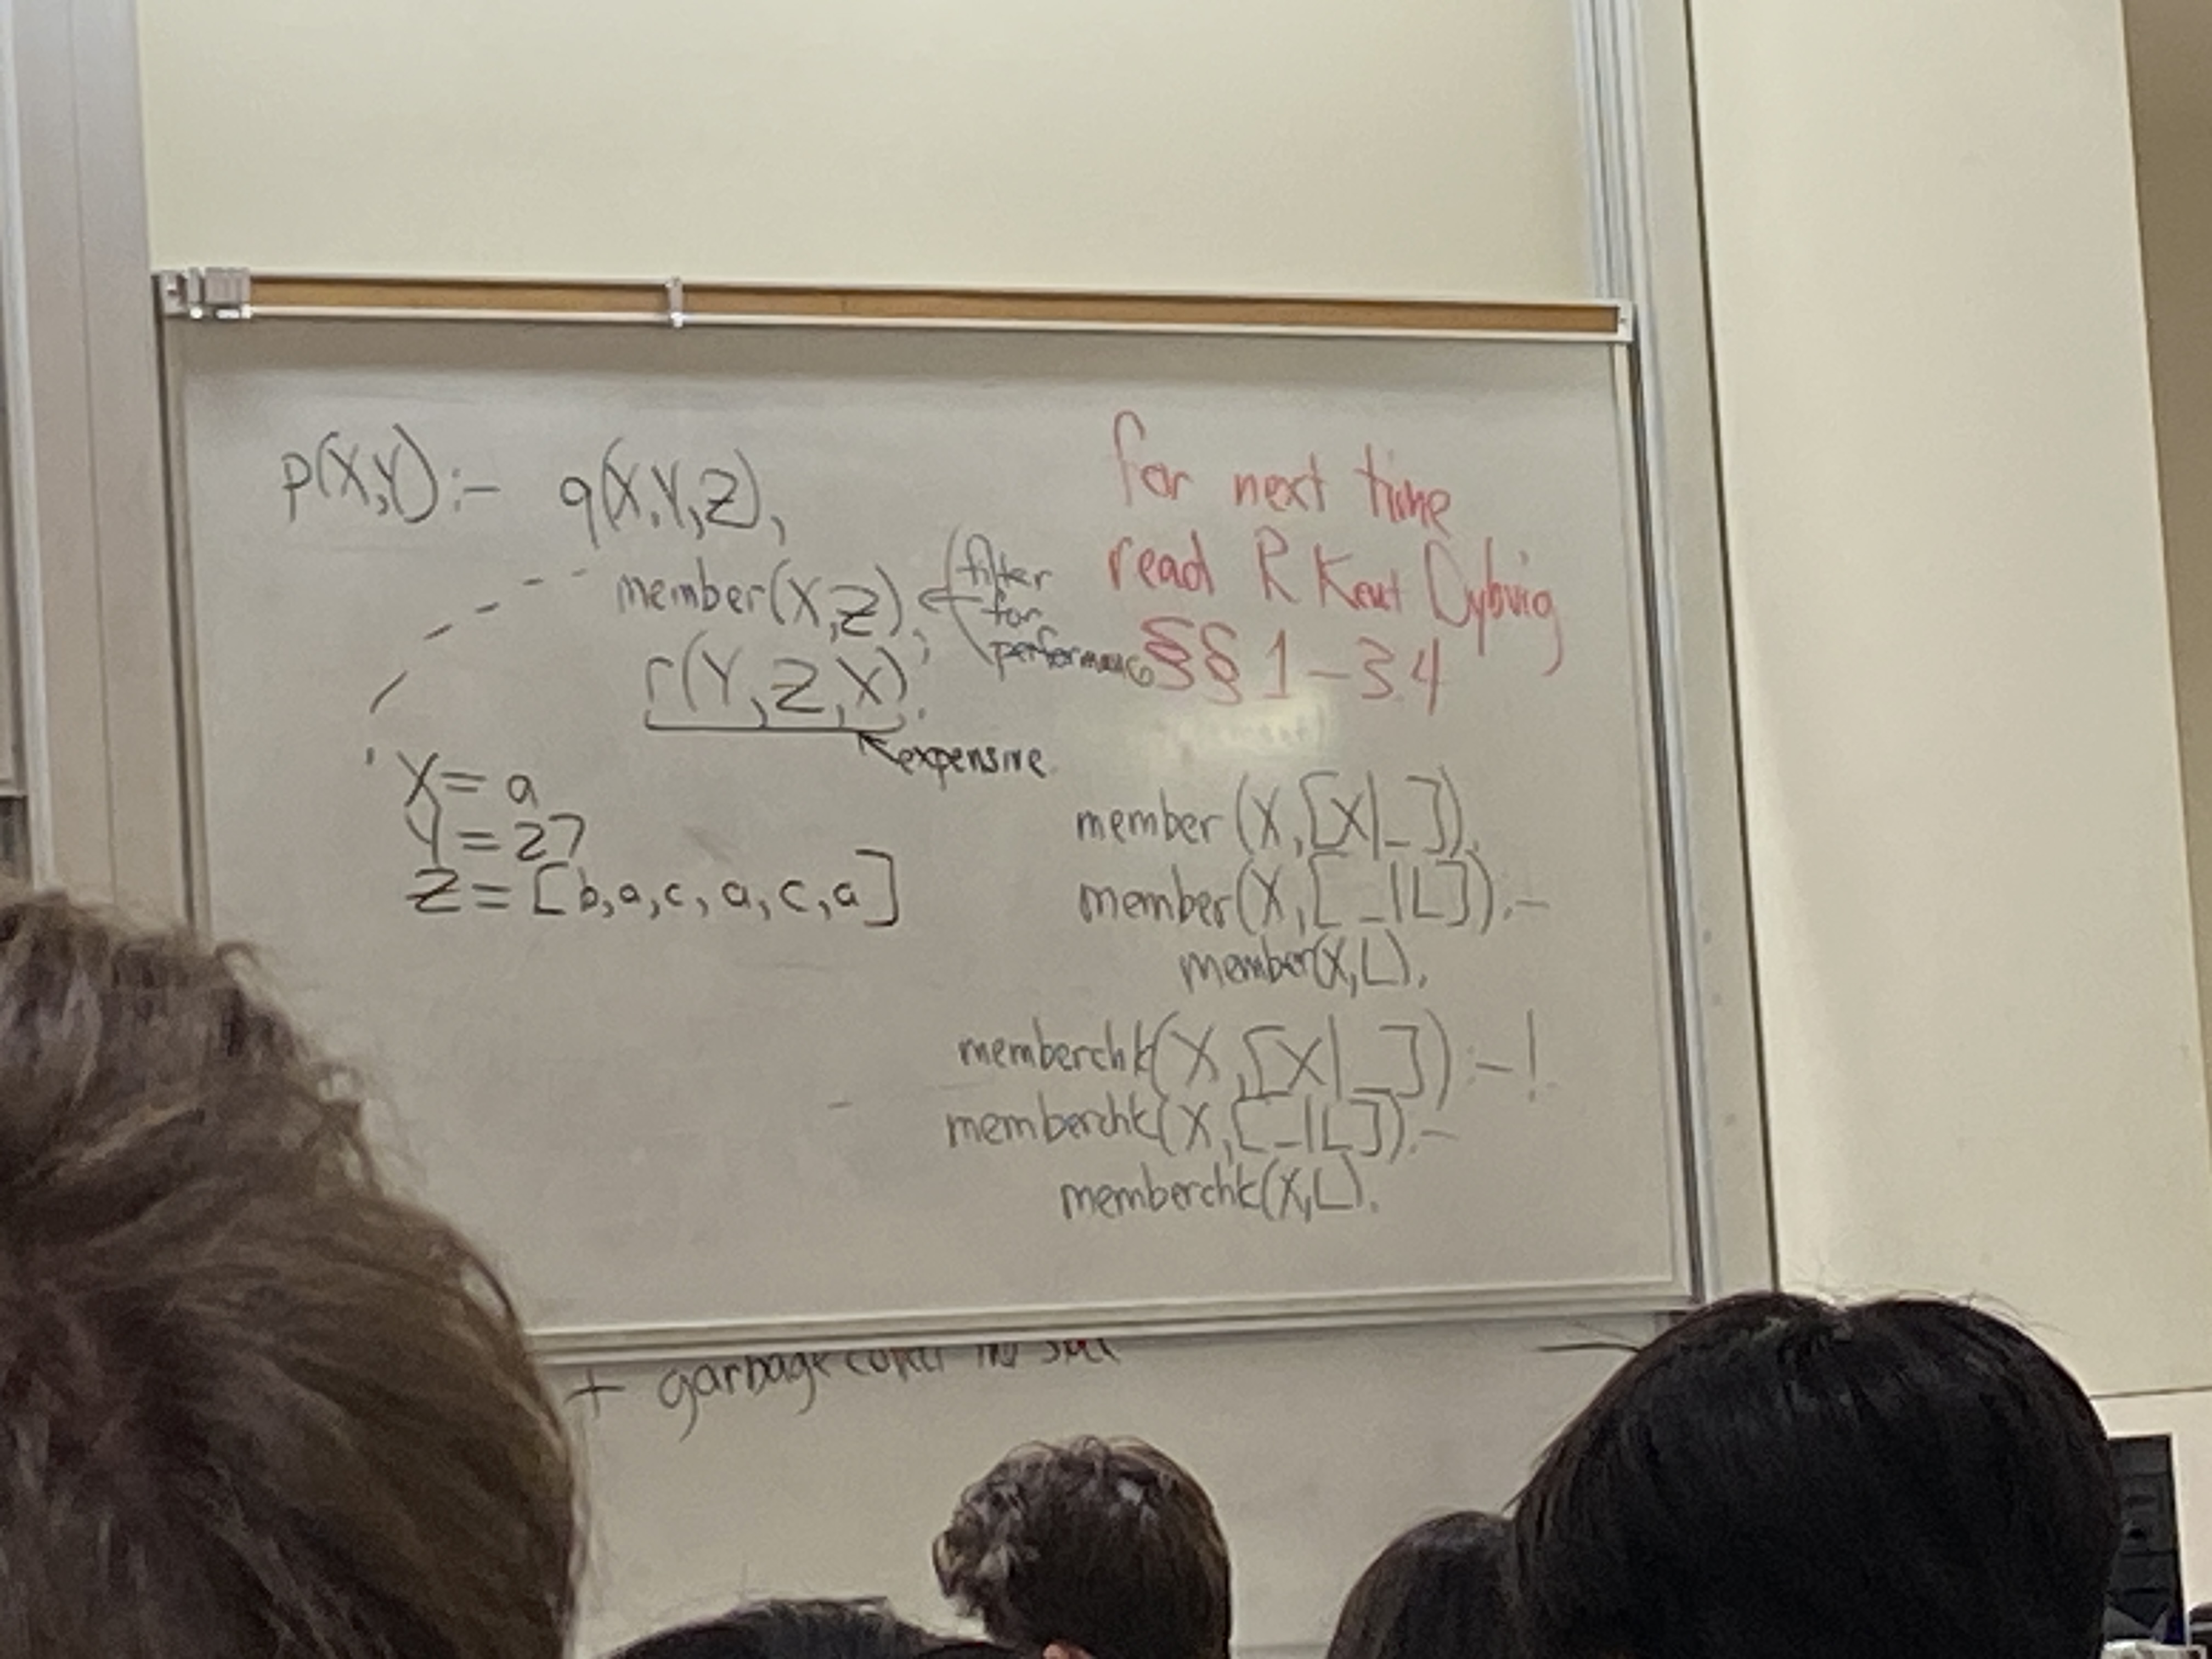 p(X,Y):- q(X,Y,Z),
member(X,Z),
r(Y,Z,X).
filter
for
performance
expensive
X=a
Y=27
Z=[b,a,c,a,c,a]
for next time
read R Kent Dybvig
§§ 1-3.4
member(X,[X|_]).
member(X,[_|L]):-
member(X,L).
memberchk(X,[X|_]):-!.
memberchk(X,[_|L]):-
memberchk(X,L).
+ garbage